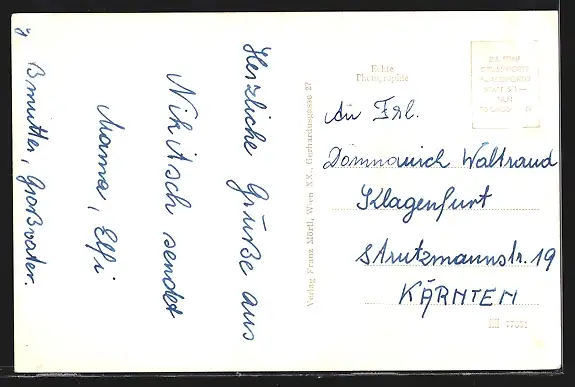 Herzliche Grüße aus
Nikitsch sendet
Mama, Elfi
Großvater.
Echte
Photographie
Verlag Franz Mörtl, Wien XX., Gerhardusgasse 27
An Frl.
Domnanich Waltraud
Klagenfurt
Strutzmannstr. 19
KÄRNTEN